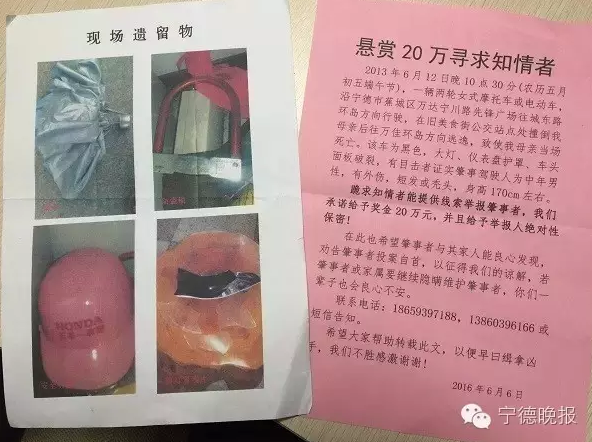 现场遗留物
HONDA
悬赏 20 万寻求知情者
2013 年 6 月 12 日晚 10 点 30 分(农历五月
初五端午节)，一辆两轮女式摩托车或电动车，
沿宁德市蕉城区万达宁川路先锋广场往城东路
环岛方向行驶，在旧美食街公交站点处撞倒我
母亲后往万佳环岛方向逃逸，致使我母亲当场
死亡。该车为黑色，大灯、仪表盘护罩、车头
面板破裂，有目击者证实肇事驾驶人为中年男
性，有外伤，短发或秃头，身高 170cm 左右。
跪求知情者能提供线索举报肇事者，我们
承诺给予奖金 20 万元，并且给予举报人绝对性
保密！
在此也希望肇事者与其家人能良心发现，
劝告肇事者投案自首，以征得我们的谅解，若
肇事者或家属要继续隐瞒维护肇事者，你们一
辈子也会良心不安。
联系电话：18659397188，13860396166 或
短信告知。
希望大家帮助转载此文，以便早日缉拿凶
手，我们不胜感激谢谢！
2016 年 6 月 6 日
宁德晚报